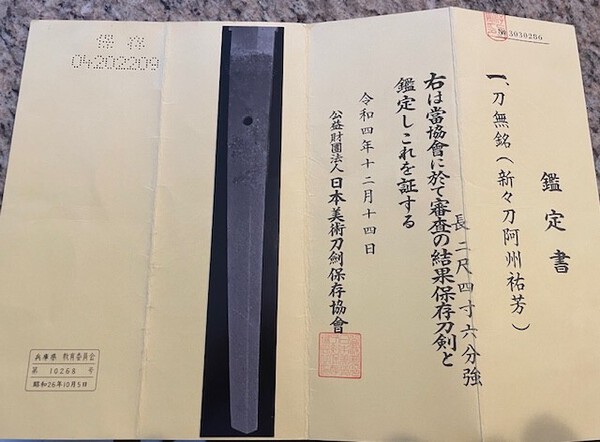 鑑定書
№3030286
一、刀 無銘（新々刀阿州祐芳）
長 二尺四寸六分強
右は當協會に於て審査の結果保存刀剣と
鑑定しこれを証する
令和四年十二月十四日
公益財團法人 日本美術刀劍保存協會
保存
04202209
兵庫県 教育委員会
第 10268 号
昭和26年10月5日